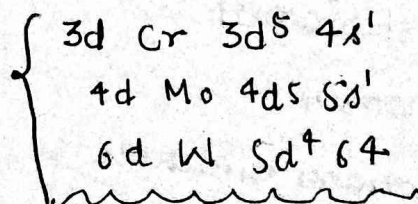 3d Cr 3d⁵ 4s¹
4d Mo 4d5 5s¹
6d W 5d⁴ 64